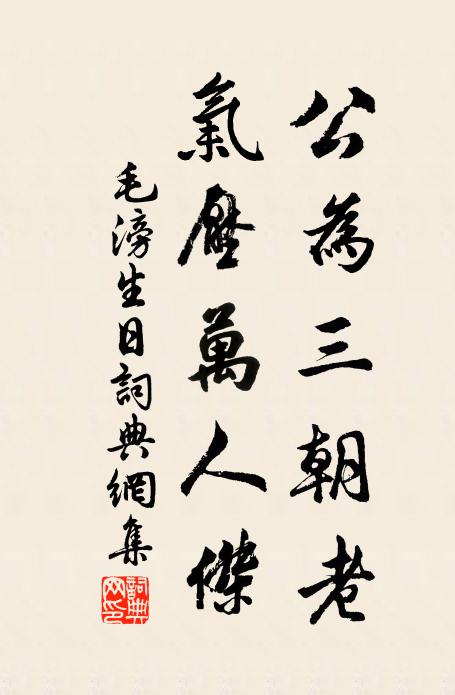 公為三朝老
氣壓萬人傑
毛滂生日詞典網集
詞典網印